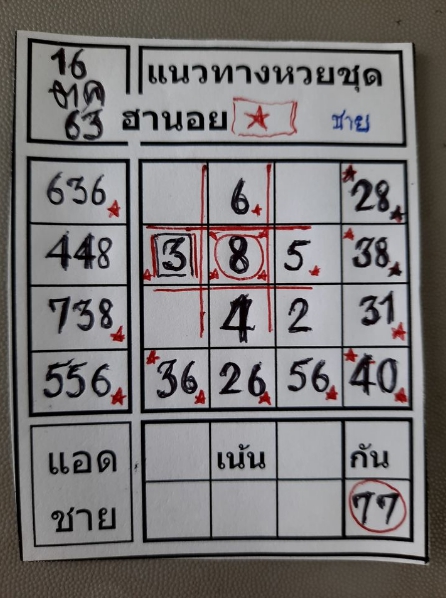 16
ตค
63
แนวทางหวยชุด
ฮานอย ชาย
636 6 28
448 3 8 5 38
738 4 2 31
556 36 26 56 40
แอด เน้น กัน
ชาย 77